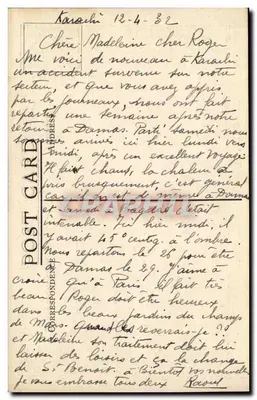 Karachi 12-4-32
Chère Madeleine cher Roger
Me voici de nouveau à Karachi
un accident survenu sur notre
secteur, et que vous avez appris
par les journaux, nous ont fait
repartir une semaine après notre
retour à Damas. Parti samedi nous
sommes arrivés ici hier lundi vers
midi, après un excellent voyage
Il fait chaud, la chaleur a
pris brusquement, c'est général
car de même à Damas
et c'était
intenable. Ici hier midi, il
y avait 45° centg. à l'ombre.
Nous repartons le 26 pour être
à Damas le 29. J'aime à
croire qu'à Paris il fait très
beau Roger doit être heureux
dans les beaux jardins du champs
de Mars. Quand les reverrais-je ??
et Madeleine son traitement doit lui
laisser des loisirs et ça la change
de St Benoit. à bientôt vos nouvelles
je vous embrasse tous deux Raoul
POST CARD
CORRESPONDENCE